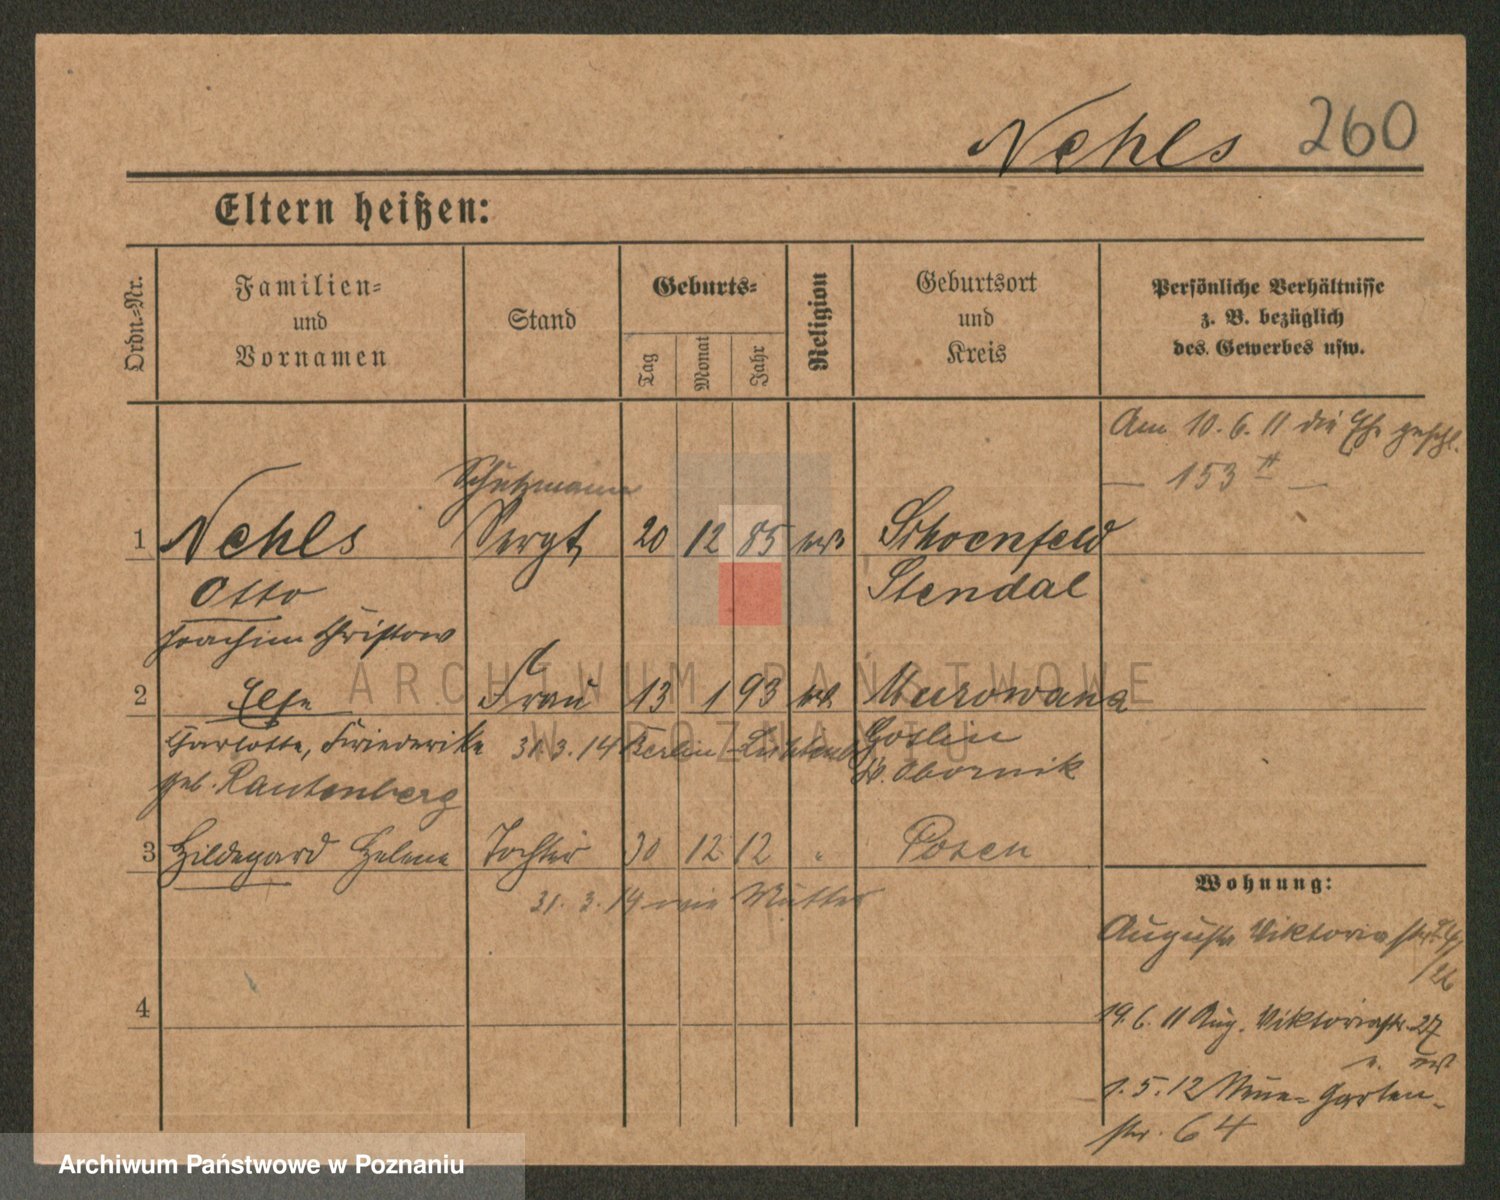 Nehls 260
Eltern heißen:
Ordn.-Nr.
Familien-
und
Vornamen
Stand
Geburts-
Tag
Monat
Jahr
Religion
Geburtsort
und
Kreis
Persönliche Verhältnisse
z. B. bezüglich
des Gewerbes usw.
Am 10. 6. 11 die Ehe geschl.
— 153 II —
Schutzmann
1 Nehls Sergt 20 12 85 Schoenfeld
Otto Stendal
Joachim Christow
2 Else Frau 13 1 93 Murowana
Charlotte, Friederike 31. 3. 14 Berlin-Lichtenb. Goslin
geb. Rautenberg Kr. Obornik
3 Hildegard Helene Tochter 30 12 12 " Posen
31. 3. 14 wie Mutter
Wohnung:
Auguste Viktoria str
/26
4
19. 6. 11 Aug. Viktoriastr. 27
1. 5. 12 Neue-Garten-
str. 64
ARCHIWUM PAŃSTWOWE
W POZNANIU
Archiwum Państwowe w Poznaniu